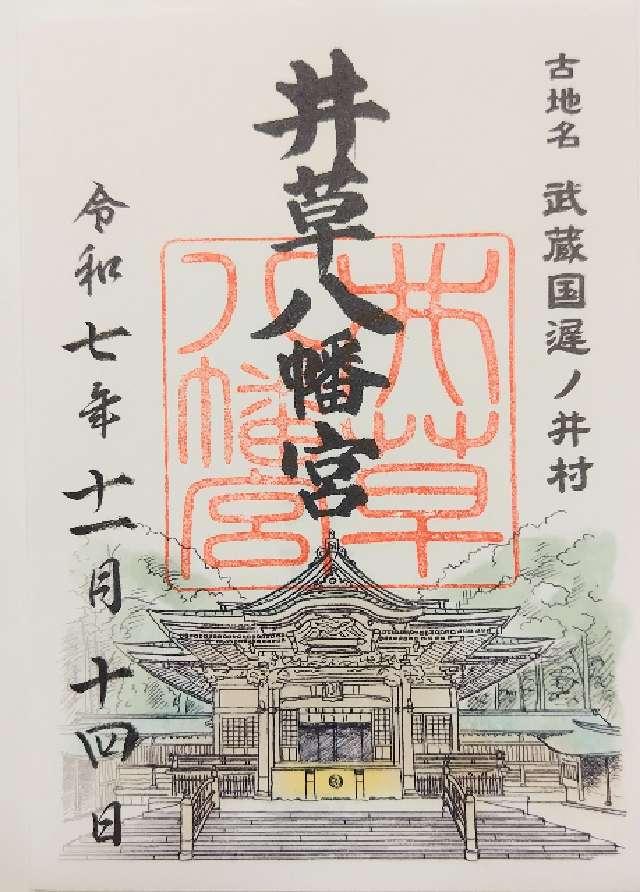 古地名 武蔵国遅ノ井村
井草八幡宮
井草
八幡宮
令和七年十一月十四日